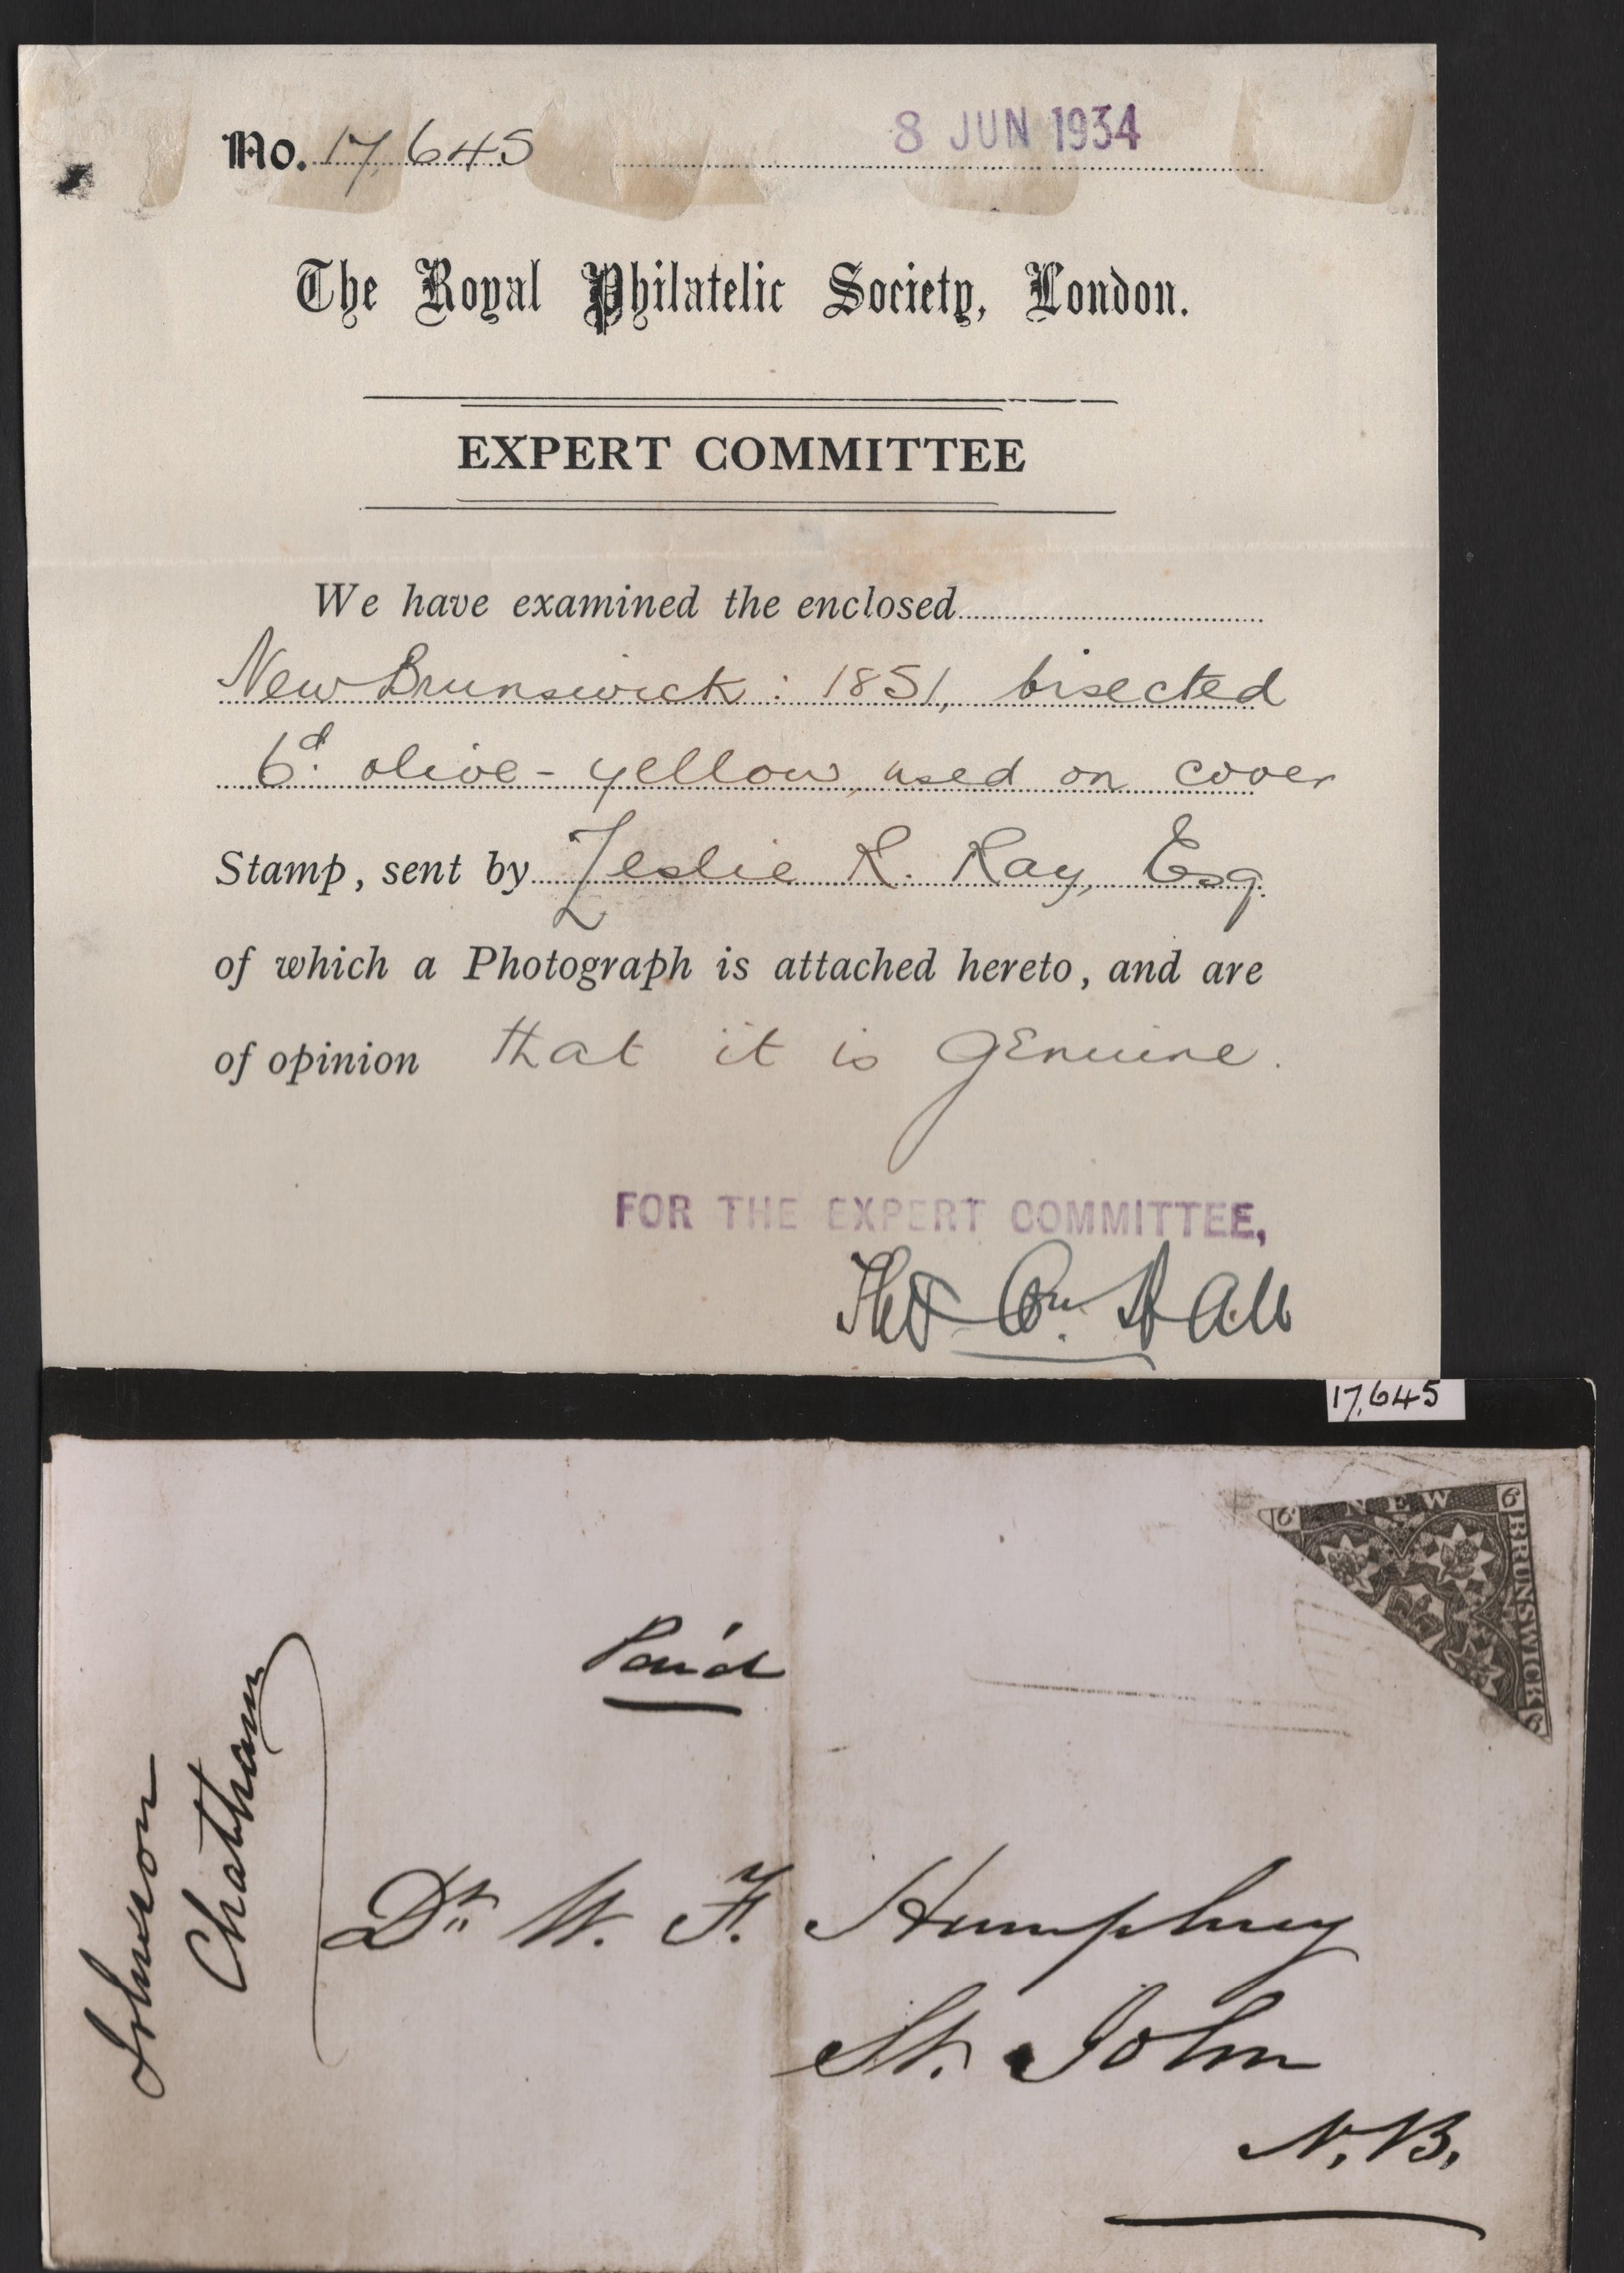 No. 17,645 8 JUN 1934
The Royal Philatelic Society, London.
EXPERT COMMITTEE
We have examined the enclosed
New Brunswick: 1851, bisected
6d. olive-yellow, used on cover
Stamp, sent by Leslie R. Ray, Esq.
of which a Photograph is attached hereto, and are
of opinion that it is genuine.
FOR THE EXPERT COMMITTEE,
Thos Wm Hall
17,645
6 NEW 6
BRUNSWICK
Paid
Johnson
Chatham
Dr. W. F. Humphrey
St. John
N.B.